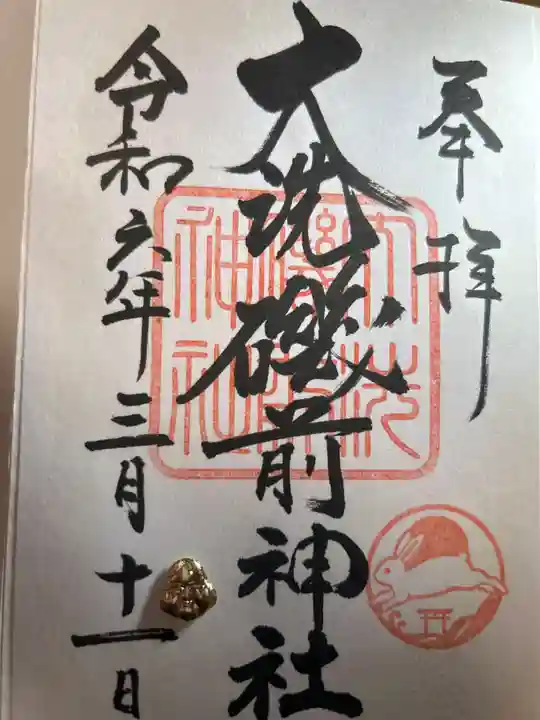 奉拝
大洗磯前神社
大洗
磯前
神社
令和六年三月十一日